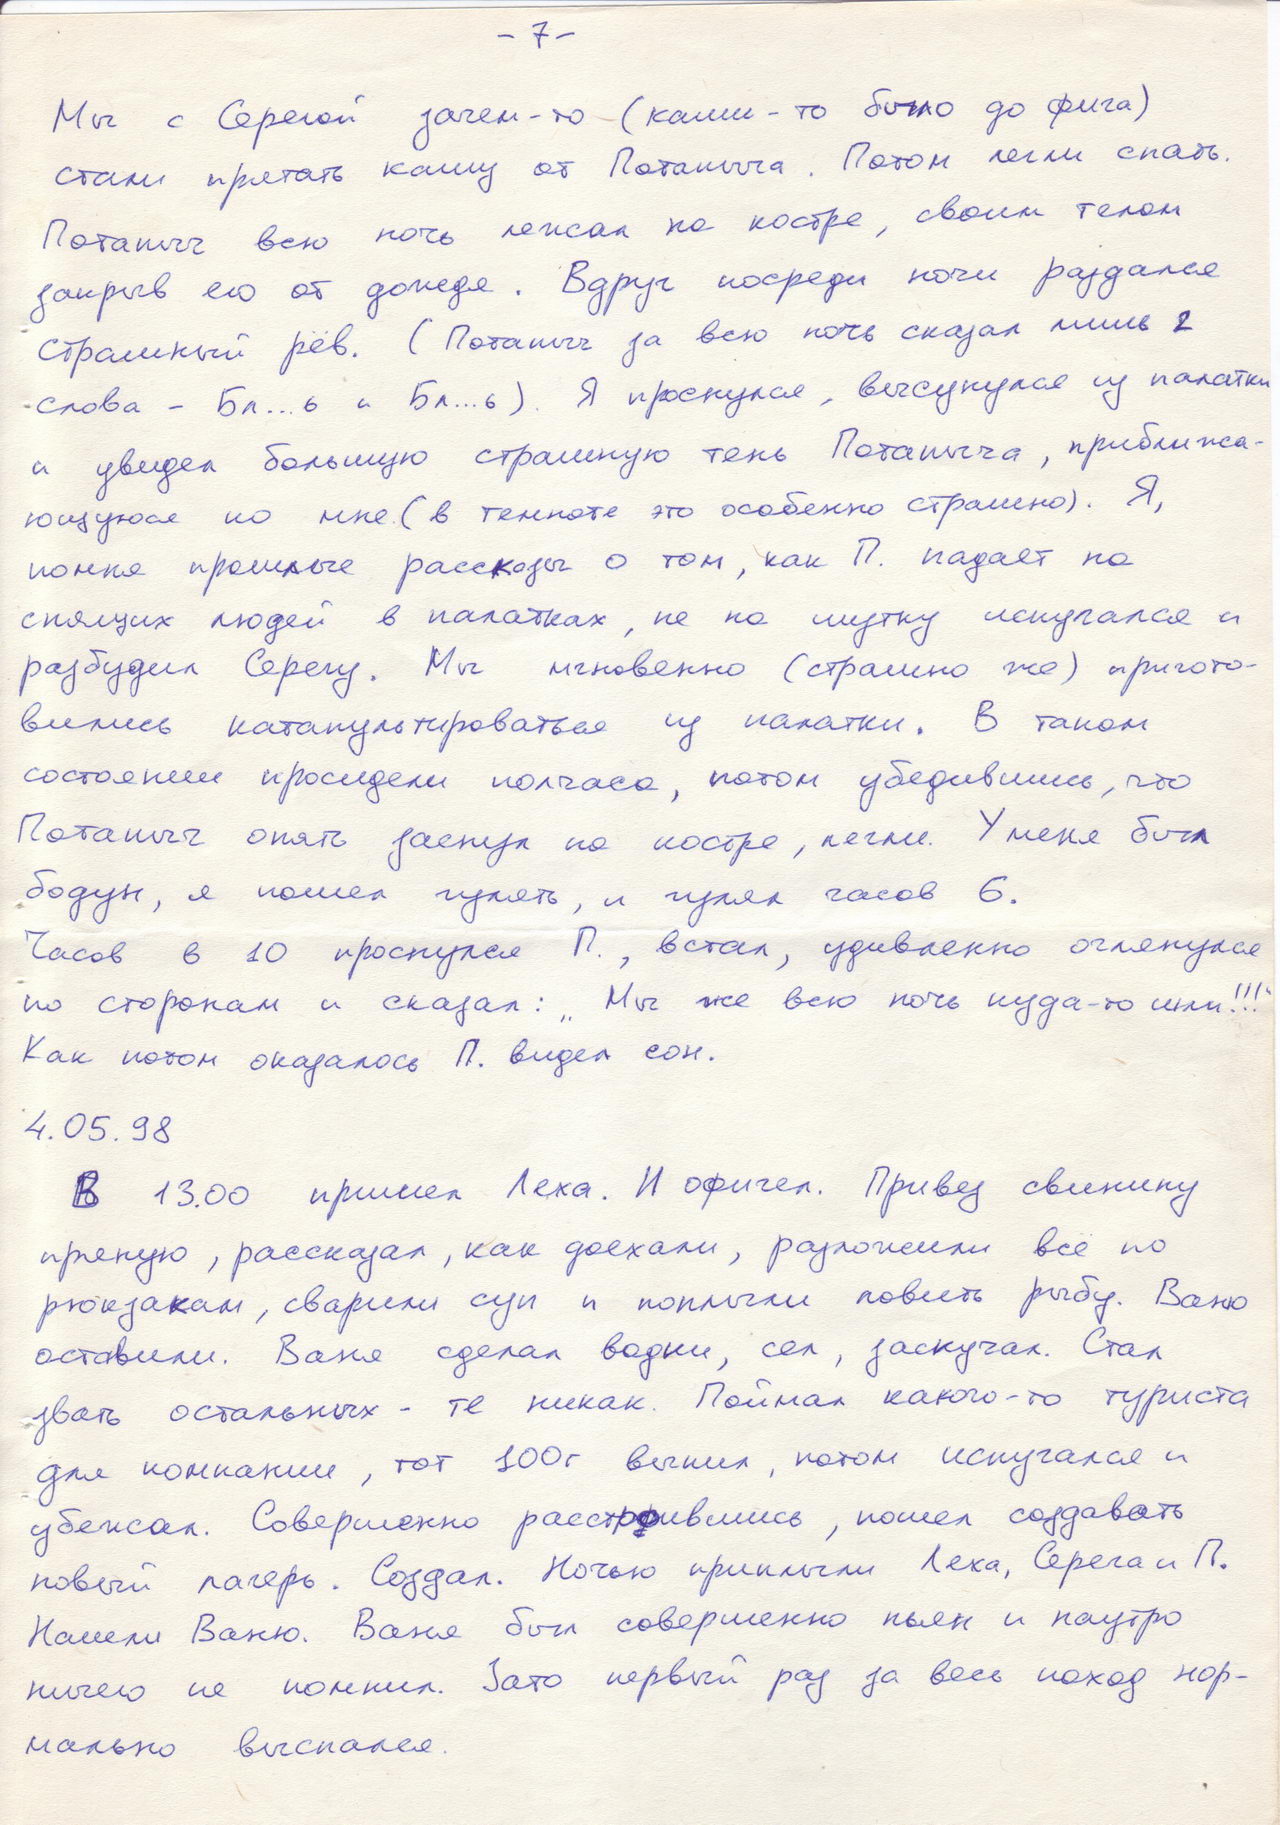 - 7 -
Мы с Серегой зачем-то (каши-то было до фига)
стали прятать кашу от Потапыча. Потом легли спать.
Потапыч всю ночь лежал на костре, своим телом
закрыв его от дождя. Вдруг посреди ночи раздался
страшный рёв. (Потапыч за всю ночь сказал лишь 2
слова - Бл...ь и Бл...ь). Я проснулся, высунулся из палатки
и увидел большую страшную тень Потапыча, приближа-
ющуюся ко мне (в темноте это особенно страшно). Я,
помня прошлые рассказы о том, как П. падает на
спящих людей в палатках, не на шутку испугался и
разбудил Серегу. Мы мгновенно (страшно же) пригото-
вились катапультироваться из палатки. В таком
состоянии просидели полчаса, потом убедившись, что
Потапыч опять заснул на костре, легли. У меня был
бодун, я пошел гулять, и гулял часов 6.
Часов в 10 проснулся П., встал, удивленно оглянулся
по сторонам и сказал: „Мы же всю ночь куда-то шли!!!“
Как потом оказалось П. видел сон.
4.05.98
В 13.00 пришел Леха. И офигел. Привез свинину
пряную, рассказал, как доехали, разложили всё по
рюкзакам, сварили суп и поплыли ловить рыбу. Ваню
оставили. Ваня сделал водки, сел, заскучал. Стал
звать остальных - те никак. Поймал какого-то туриста
для компании, тот 100г выпил, потом испугался и
убежал. Совершенно расстроившись, пошел создавать
новый лагерь. Создал. Ночью приплыли Леха, Серега и П.
Нашли Ваню. Ваня был совершенно пьян и наутро
ничего не помнил. Зато первый раз за весь поход нор-
мально выспался.